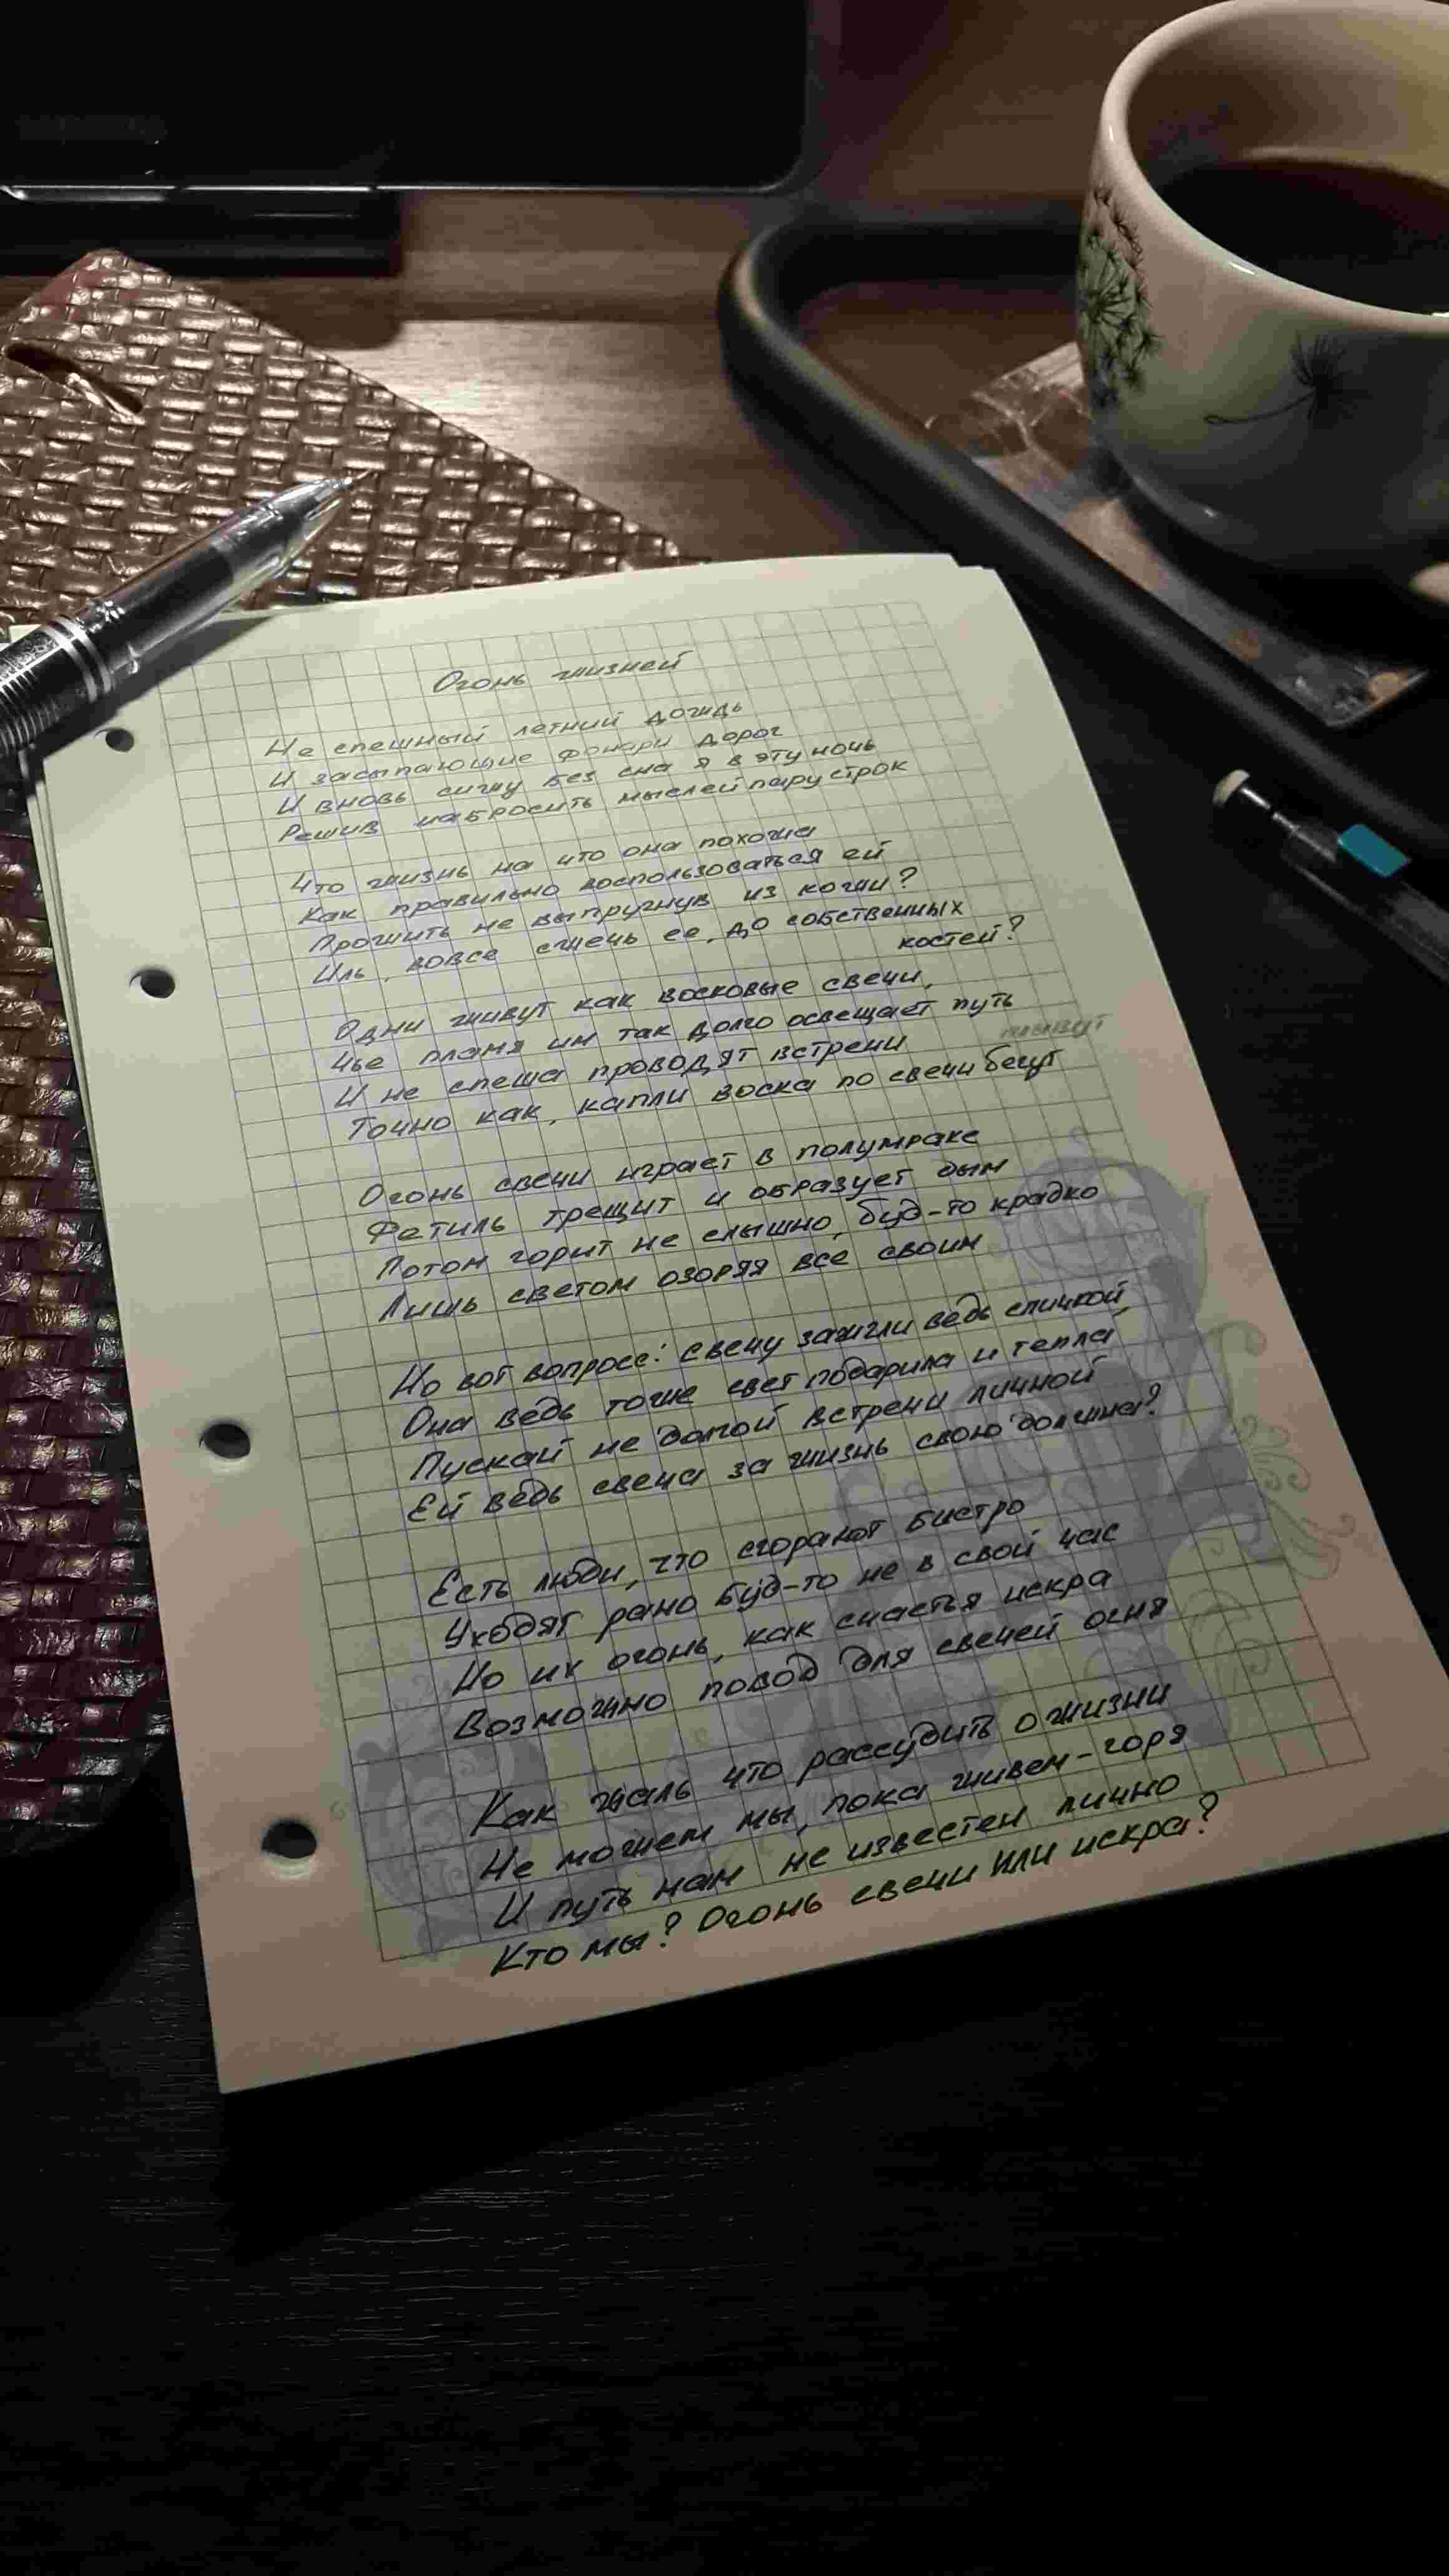 Огонь жизней
Не спешный летний дождь
И засыпающие фонари дорог
И вновь сижу без сна я в эту ночь
Решив набросить мыслей пару строк
Что жизнь на что она похожа
Как правильно воспользоваться ей
Прожить не выпругнув из кожи?
Иль, вовсе сжечь ее, до собственных
костей?
Одни живут как восковые свечи,
Чье пламя им так долго освещает путь
И не спеша проводят встречи
Точно как, капли воска по свечи бегут
Огонь свечи играет в полумраке
Фетиль трещит и образует дым
Потом горит не слышно, буд-то крадко
Лишь светом озоряя все своим
Но вот вопросс: свечу зажгли ведь спичкой,
Она ведь тоже свет подарила и тепла
Пускай не долгой встречи личной
Ей ведь свеча за жизнь свою должна?
Есть люди, что сгорают быстро
Уходят рано буд-то не в свой час
Но их огонь, как счастья искра
Возможно повод для свечей огня
Как жаль что рассудить о жизни
Не можем мы, пока живем-горя
И путь нам не известен лично
Кто мы? Огонь свечи или искра?